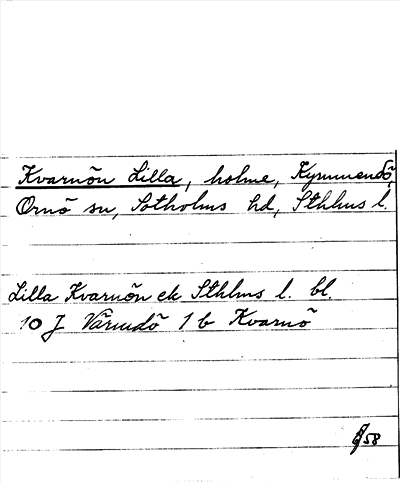 Kvarnön Lilla, holme, Kymmendö,
Ornö sn, Sotholms hd, Sthlms l.
Lilla Kvarnön ek Sthlms l. bl.
10 J Värmdö 1 b Kvarnö
58